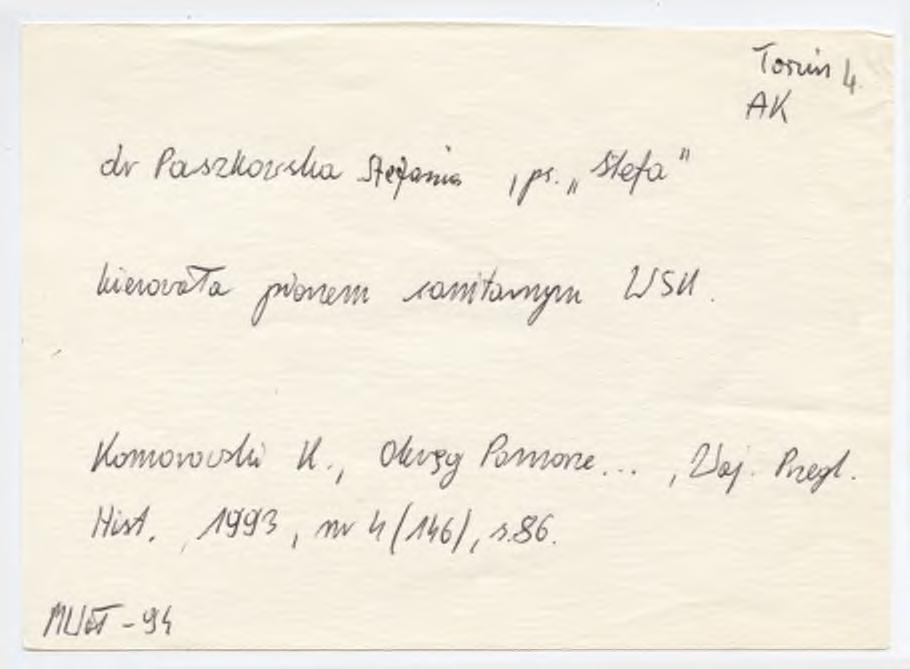 Toruń 4.
AK
dr Paszkowska Stefania , ps. „Stefa”
kierowała pionem sanitarnym WSK.
Komorowski K., Okręg Pomorze... , Woj. Przegl.
Hist. , 1993, nr 4 (146), s. 86.
- 94